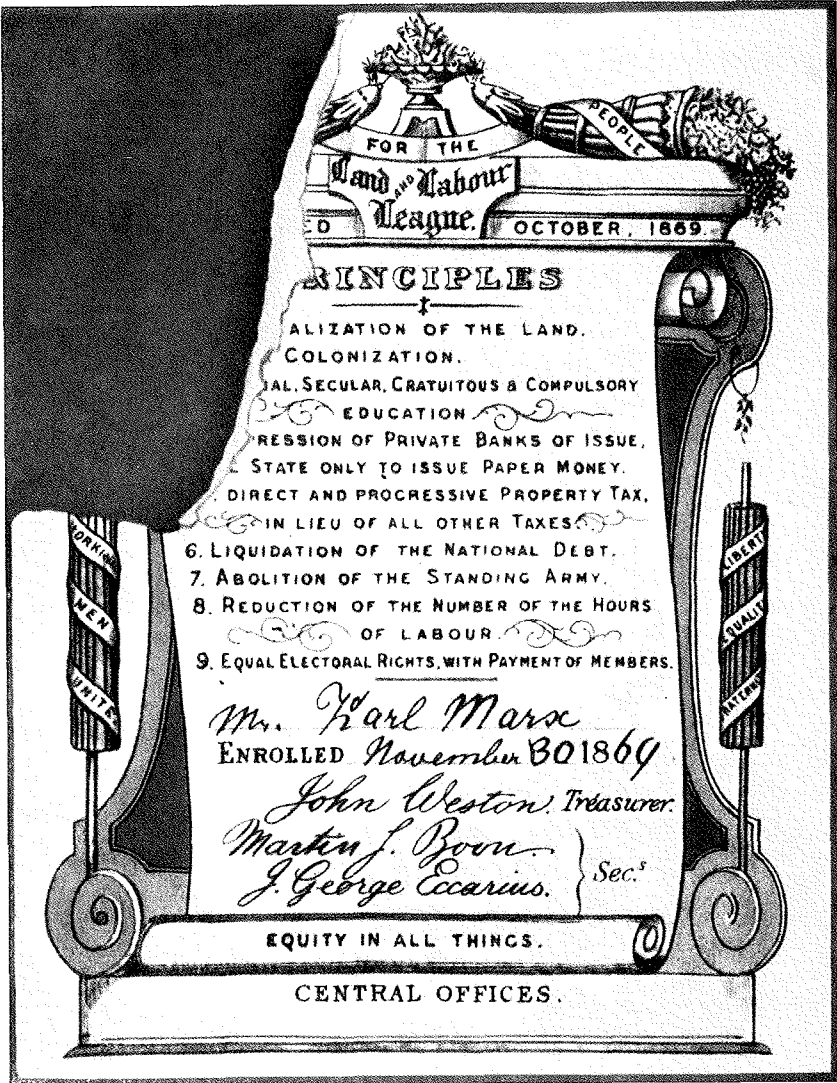 FOR THE
PEOPLE
Land AND Labour
League.
ED OCTOBER, 1869.
RINCIPLES
ALIZATION OF THE LAND.
COLONIZATION.
IAL, SECULAR, GRATUITOUS & COMPULSORY
EDUCATION
RESSION OF PRIVATE BANKS OF ISSUE,
STATE ONLY TO ISSUE PAPER MONEY.
DIRECT AND PROGRESSIVE PROPERTY TAX,
IN LIEU OF ALL OTHER TAXES.
6. LIQUIDATION OF THE NATIONAL DEBT.
7. ABOLITION OF THE STANDING ARMY.
8. REDUCTION OF THE NUMBER OF THE HOURS
OF LABOUR.
9. EQUAL ELECTORAL RIGHTS, WITH PAYMENT OF MEMBERS.
WORKING
MEN
UNITE.
LIBERT
EQUALIT
RATERNI
Mr. Karl Marx
ENROLLED November 30 1869
John Weston. Treasurer.
Martin J. Boon.
J. George Eccarius.
Sec.s
EQUITY IN ALL THINGS.
CENTRAL OFFICES.